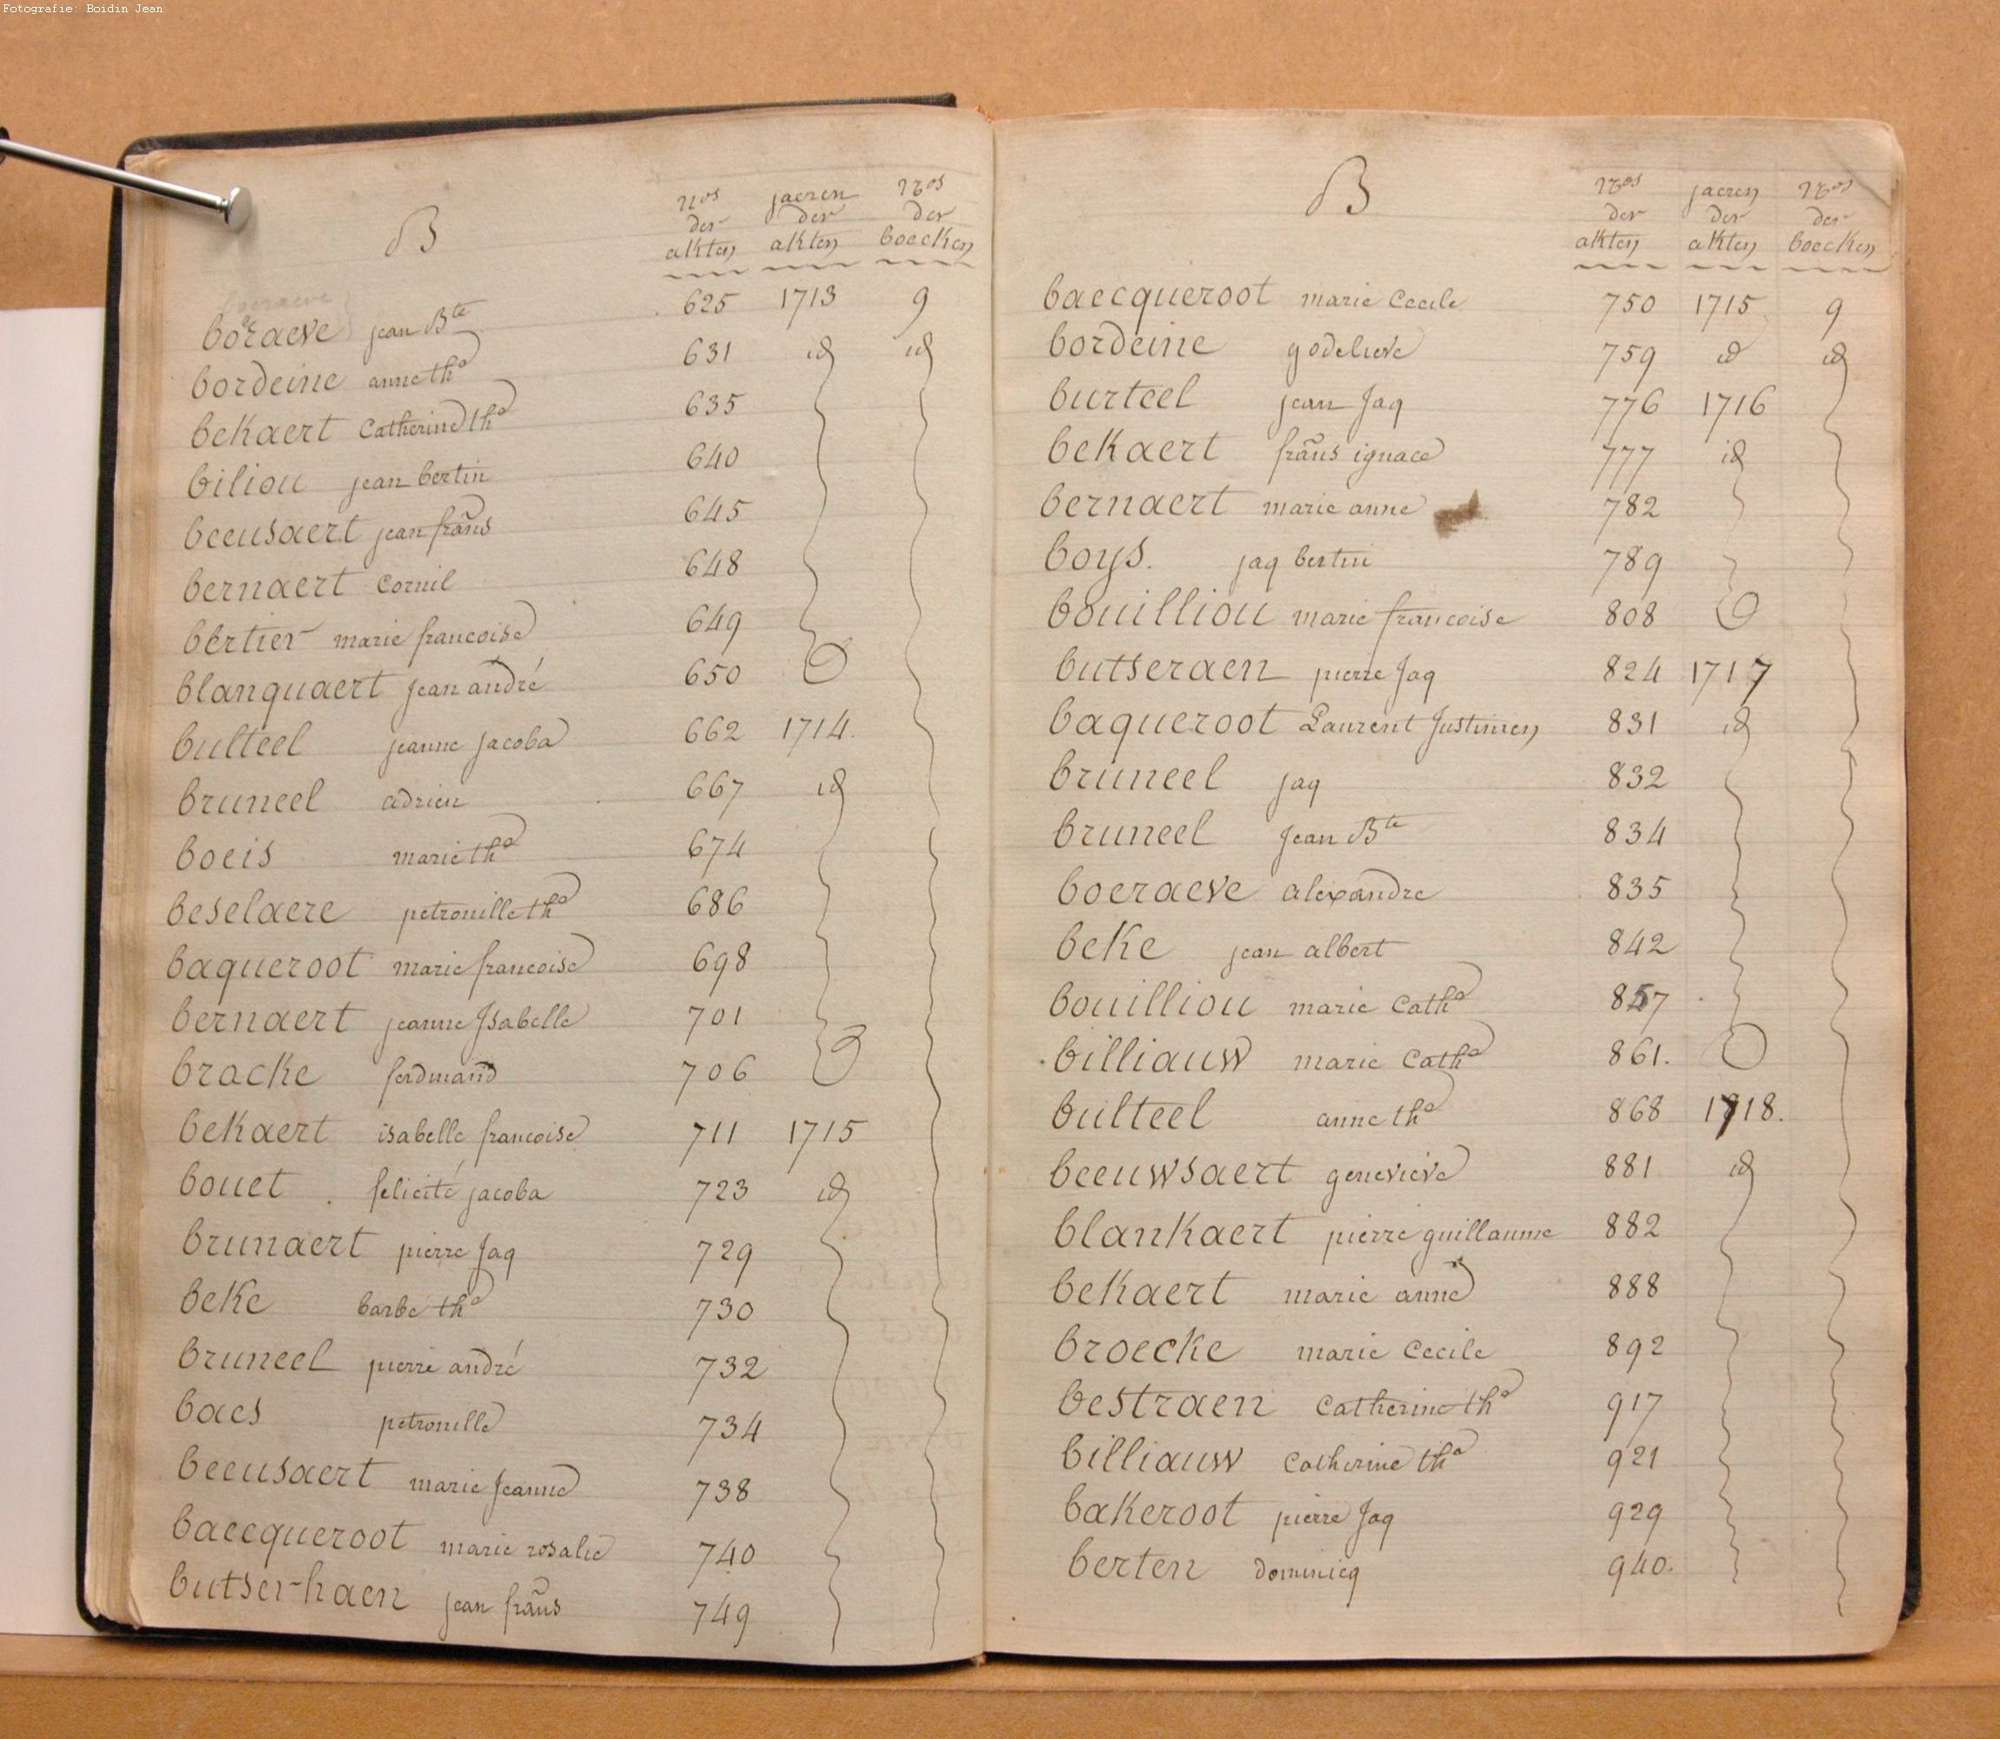 Fotografie: Boidin Jean
B
nos jaeren nos
der der der
akten akten boecken
boeraeve
boeraeve jean Bte 625 1713 9
bordeine anne tha 631 id id
bekaert Catherine tha 635
biliou jean bertin 640
beeusaert jean frans 645
bernaert Cornil 648
bertier marie francoise 649
blanquaert jean andré 650
bulteel jeanne jacoba 662 1714.
bruneel adrien 667 id
boeis marie tha 674
beselaere petronille tha 686
baqueroot marie francoise 698
bernaert jeanne Isabelle 701
bracke ferdinand 706
bekaert isabelle francoise 711 1715
bouet felicité jacoba 723 id
brunaert pierre Jaq 729
beke barbe tha 730
bruneel pierre andré 732
baes petronille 734
beeusaert marie Jeanne 738
baecqueroot marie rosalie 740
butserhaen jean frans 749
B
nos jaeren nos
der der der
akten akten boecken
baecqueroot marie Cecile 750 1715 9
bordeine godelieve 759 id id
burteel jean Jaq 776 1716
bekaert frans ignace 777 id
bernaert marie anne 782
boys. jaq bertin 789
bouilliou marie francoise 808
butseraen pierre Jaq 824 1717
baqueroot Laurent Justinien 831 id
bruneel jaq 832
bruneel Jean Bte 834
boeraeve alexandre 835
beke jean albert 842
bouilliou marie Catha 857
billiauw marie Catha 861.
bulteel anne tha 868 1718.
beeuwsaert genevieve 881 id
blankaert pierre guillaume 882
bekaert marie anne 888
broecke marie Cecile 892
bestraen Catherine tha 917
billiauw Catherine tha 921
bakeroot pierre Jaq 929
berten dominicq 940.